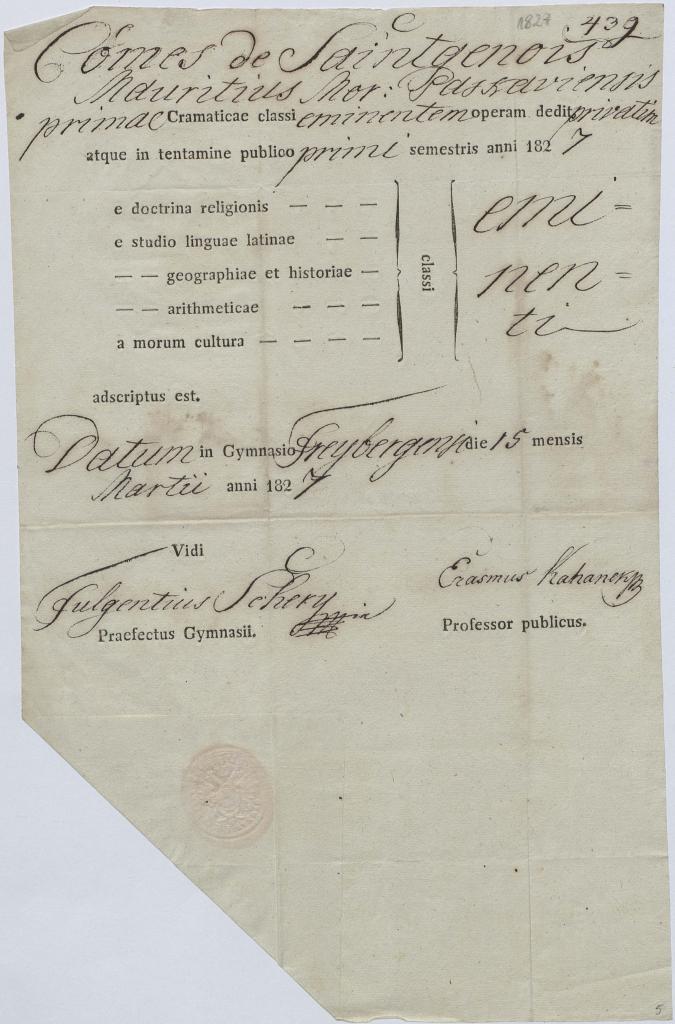 1827
439
Comes de Saintgenois
Mauritius Mor: Paskaviensis
primae Cramaticae classi eminentem operam dedit privatim
atque in tentamine publico primi semestris anni 1827
e doctrina religionis — — —
e studio linguae latinae — —
— — geographiae et historiae —
— — arithmeticae — — —
a morum cultura — — — —
classi
emi=
nen=
ti
adscriptus est.
Datum in Gymnasio Freybergensi die 15 mensis
Martii anni 1827
Vidi
Fulgentius Schery
Praefectus Gymnasii.
Erasmus Kahanek
Professor publicus.
5